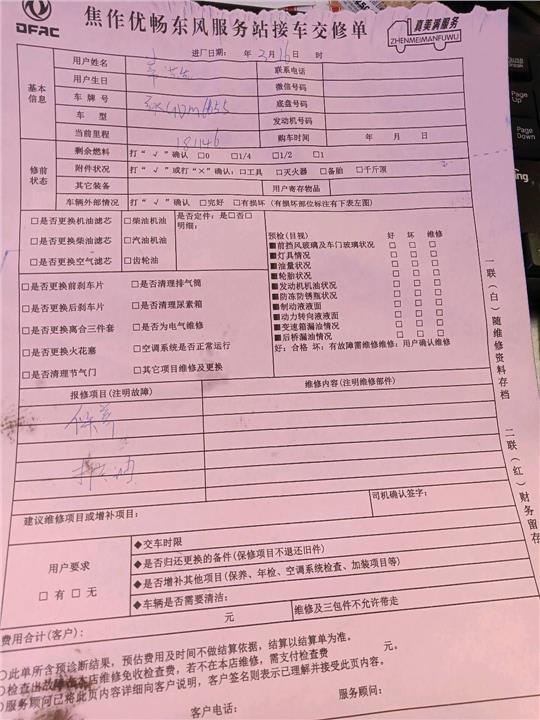 DFAC
焦作优畅东风服务站接车交修单
真美满服务
ZHENMEIMANFUWU
进厂日期: 年 2月16日 时
基本信息
用户姓名 联系电话
用户生日 微信号码
车牌号 底盘号码
车 型 发动机号码
当前里程 181146 购车时间 年 月 日
修前状态
剩余燃料 打“√”确认 □0 □1/4 □1/2 □1
附件状况 打“√”或打“×”确认:□工具 □灭火器 □备胎 □千斤顶
其它装备 用户寄存物品
车辆外部情况 打“√”确认 □完好 □有损坏(有损坏部位标注有下表左图)
□是否更换机油滤芯 □柴油机油 是否定件:是□否□
明细:
□是否更换柴油滤芯 □汽油机油
□是否更换空气滤芯 □齿轮油
预检(目视) 好 坏 维修
■前挡风玻璃及车门玻璃状况 □ □ □
■灯具情况 □ □ □
■油量状况 □ □ □
■轮胎状况 □ □ □
■发动机机油状况 □ □ □
■防冻防锈瓶状况 □ □ □
■制动液液面 □ □ □
■动力转向液液面 □ □ □
■变速箱漏油情况 □ □ □
■后桥漏油情况 □ □ □
好:合格 坏:有故障需维修维修:用户确认维修
□是否更换前刹车片 □是否清理排气筒
□是否更换后刹车片 □是否清理尿素箱
□是否更换离合三件套 □是否为电气维修
□是否更换火花塞 □空调系统是否正常运行
□是否清理节气门 □其它项目维修及更换
报修项目(注明故障) 维修内容(注明维修部件)
保养
建议维修项目或增补项目: 司机确认签字:
用户要求
□有 □无
◆交车时限
◆是否归还更换的备件(保修项目不退还旧件)
◆是否增补其他项目(保养、年检、空调系统检查、加装项目等)
◆车辆是否需要清洁:
费用合计(客户): 元 维修及三包件不允许带走
○此单所含预诊断结果,预估费用及时间不做结算依据,结算以结算单为准。
○检查出故障在本店维修免收检查费,若不在本店维修,需支付检查费 元。
○服务顾问已将此页内容详细向客户说明,客户签名则表示已理解并接受此页内容。
服务顾问:
客户电话:
一联(白)随维修资料存档
二联(红)财务留存
Page Up
Page Down